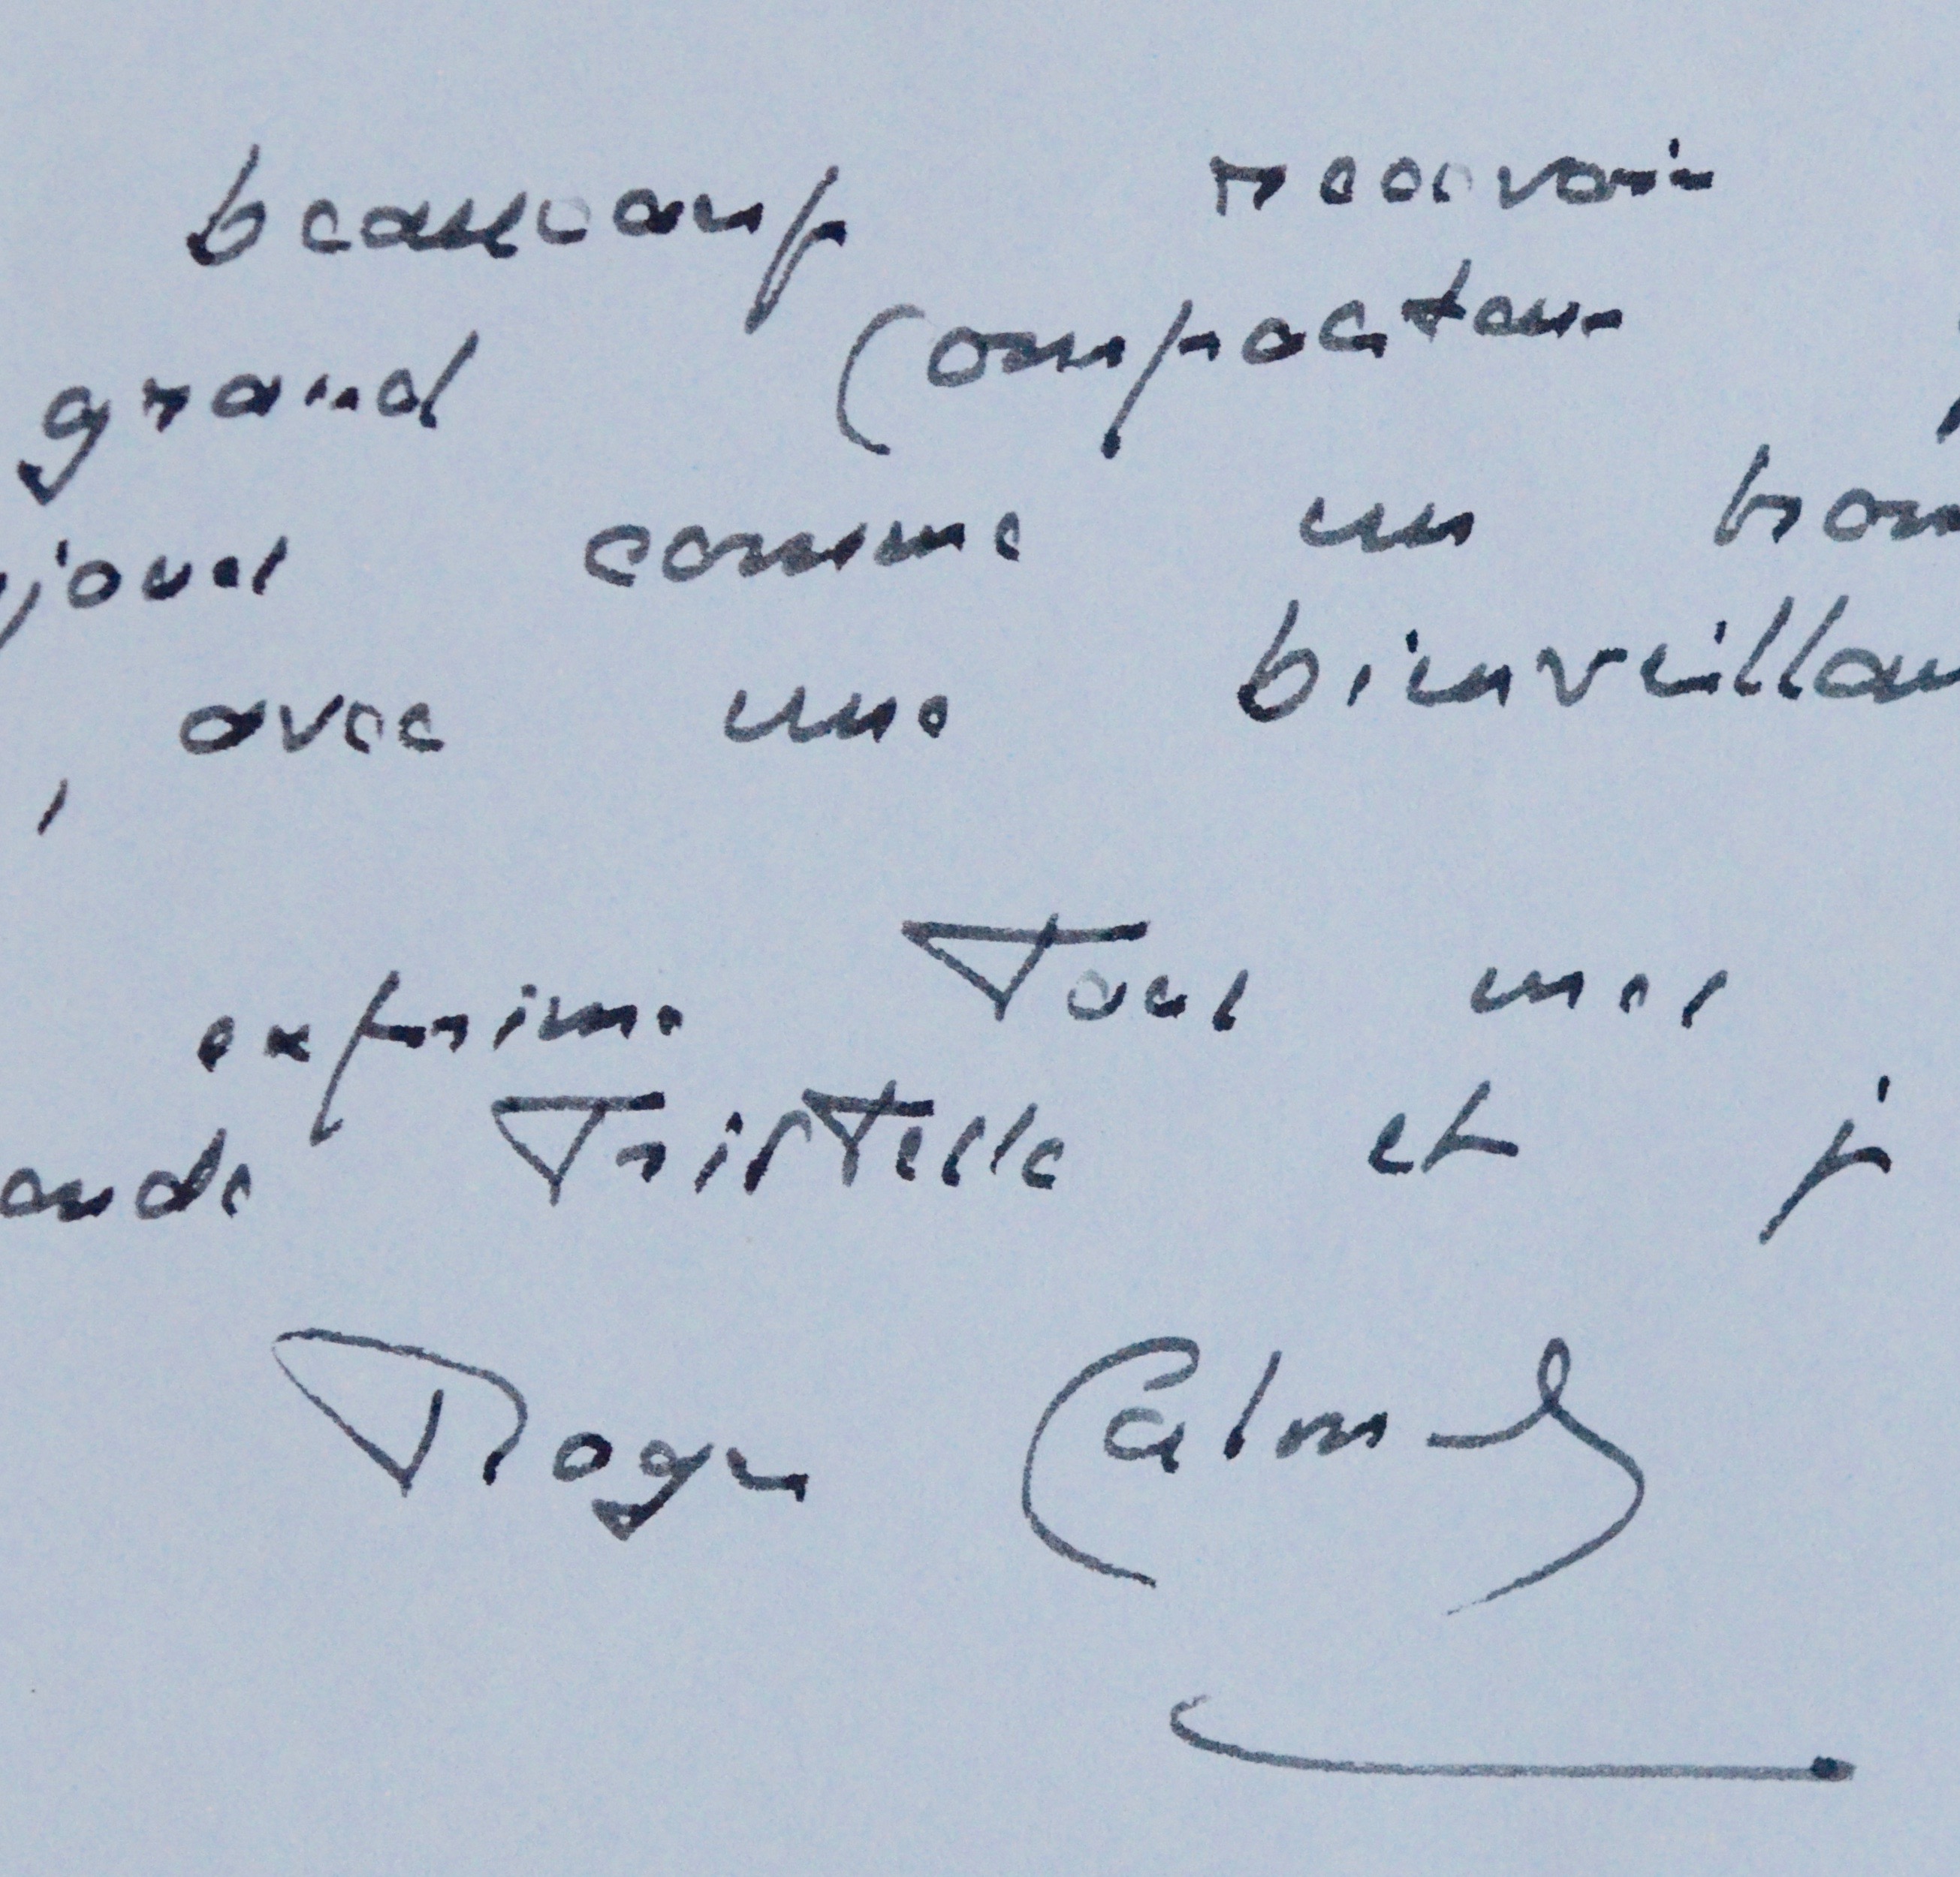 beaucoup recevoir
grand Compositeur
joué comme un
avec une bienveillan
exprime Tous mes
ande Tristesse et j
Roger Calmel